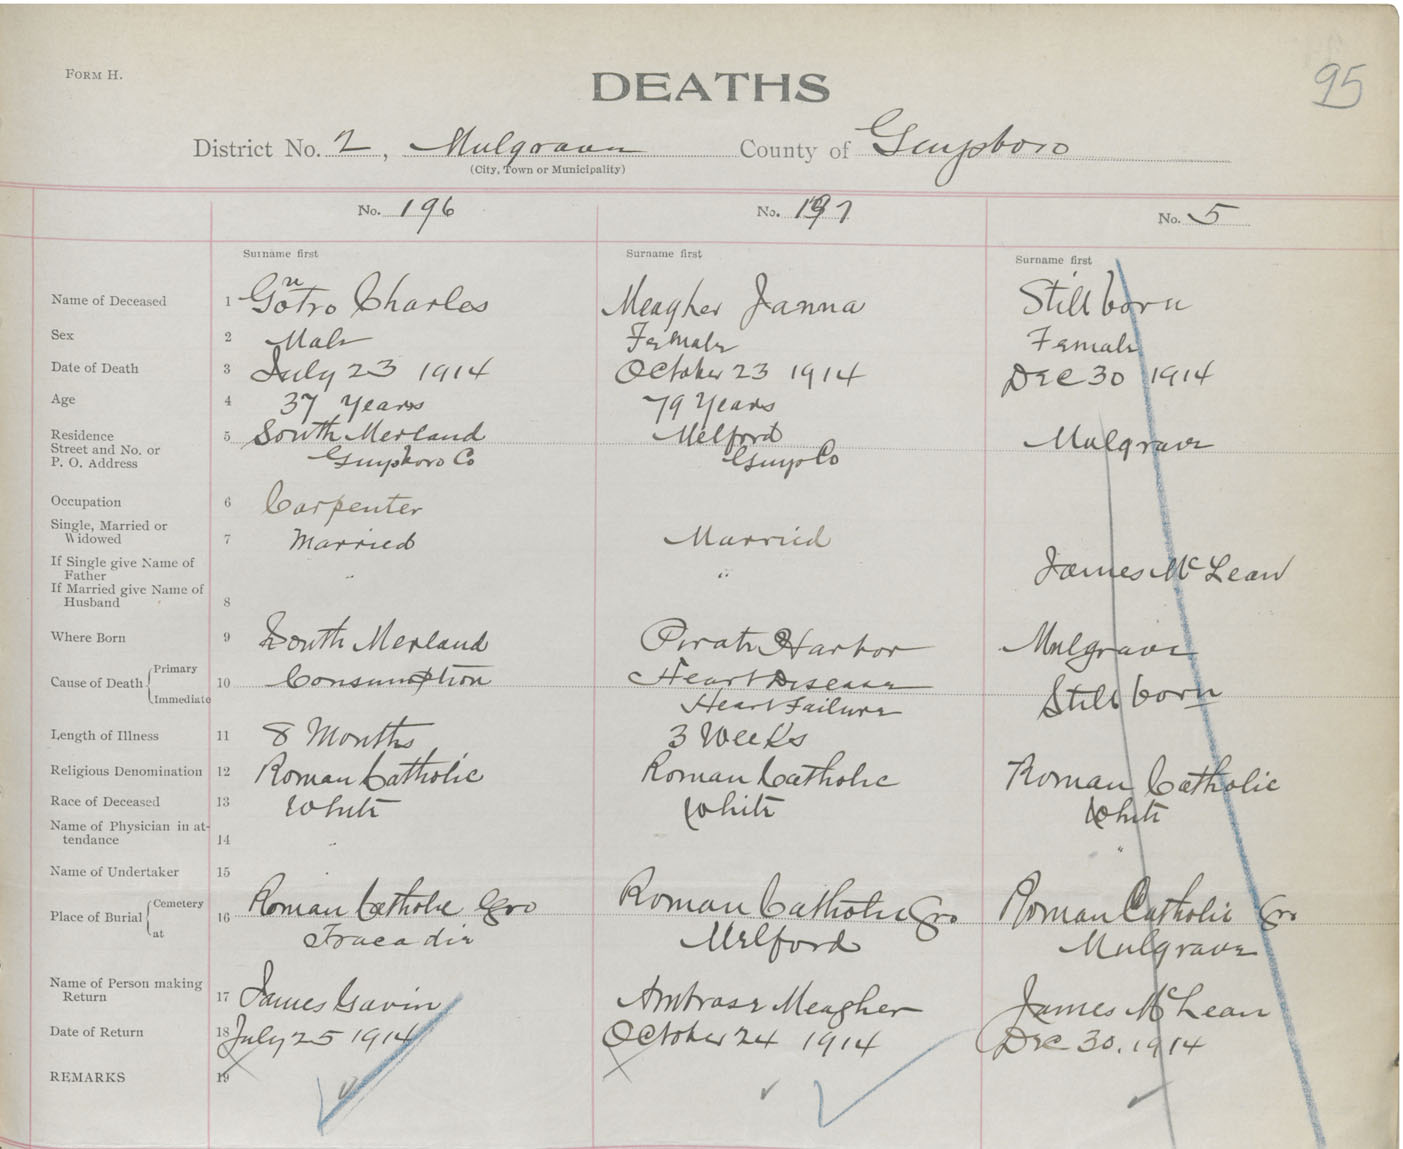 FORM H.
DEATHS
95
District No. 2, Mulgrave County of Guysboro
(City, Town or Municipality)
No. 196 No. 197 No. 5
Surname first Surname first Surname first
Name of Deceased 1 Gotro Charles Meagher Janna Stillborn
Sex 2 Male Female Female
Date of Death 3 July 23 1914 October 23 1914 Dec 30 1914
Age 4 37 Years 79 Years
Residence 5 South Merland Melford Mulgrave
Street and No. or
P. O. Address Guysboro Co Guys Co
Occupation 6 Carpenter
Single, Married or
Widowed 7 Married Married
If Single give Name of
Father " " James McLean
If Married give Name of
Husband 8
Where Born 9 South Merland Pirate Harbor Mulgrave
Cause of Death { Primary
10 Consumption Heart Disease Stillborn
Immediate Heart Failure
Length of Illness 11 8 Months 3 Weeks
Religious Denomination 12 Roman Catholic Roman Catholic Roman Catholic
Race of Deceased 13 White White White
Name of Physician in at-
tendance 14 "
Name of Undertaker 15
Place of Burial { Cemetery
16 Roman Catholic Gro Roman Catholic Gro Roman Catholic Gro
at Tracadie Melford Mulgrave
Name of Person making
Return 17 James Gavin Ambrose Meagher James McLean
Date of Return 18 July 25 1914 October 24 1914 Dec 30. 1914
REMARKS 19